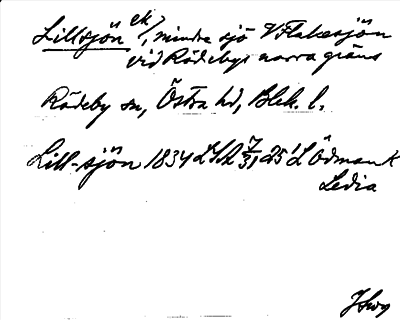 Lillsjön ek/, mindre sjö V Flakesjön
vid Rödebys norra gräns
Rödeby sn, Östra hd, Blek. l.
Lill-sjön 1834 7/31 25 L Ödman K
Ledia